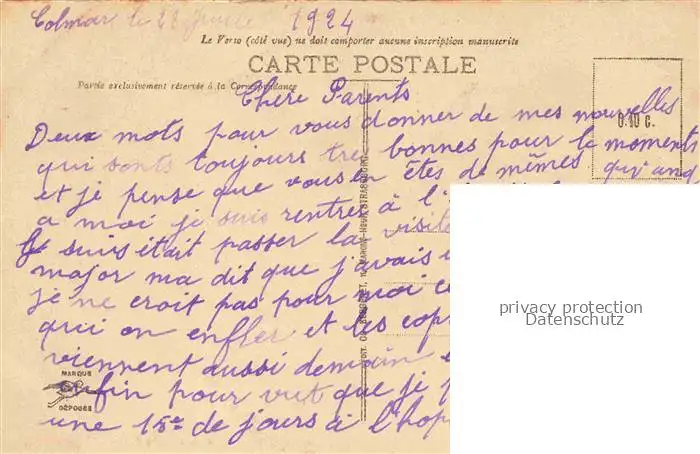 Colmar le 28 1924
Le Verso (côté vue) ne doit comporter aucune inscription manuscrite
CARTE POSTALE
Partie exclusivement réservée à la Correspondance
Chere Parents
Deux mots pour vous donner de mes nouvelles
0.10 c.
qui sonts toujours tres bonnes pour le moments
et je pense que vous en êtes de mêmes qu'and
a moi je suis rentrés à l'
suis était passer la visite
major ma dit que j'avais
je ne croit pas pour moi
qui on enfler et les cop
viennent aussi demain
MARQUE
enfin pour vut que je
DÉPOSÉE
une 15e de jours a l'hop
STRASBOURG
privacy protection
Datenschutz